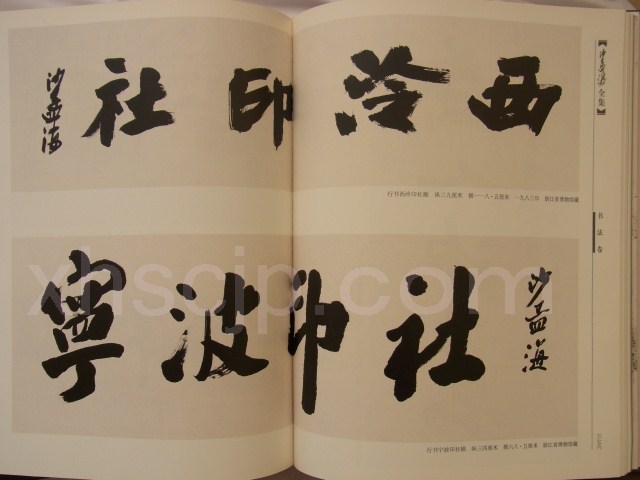 西泠印社
沙孟海
行书西泠印社额 纵三九厘米 横一一八·五厘米 一九八三年 浙江省博物馆藏
寧波印社
沙孟海
行书宁波印社额 纵三四厘米 横六八·五厘米 浙江省博物馆藏
【沙孟海全集】
书法卷
xhscjp.com